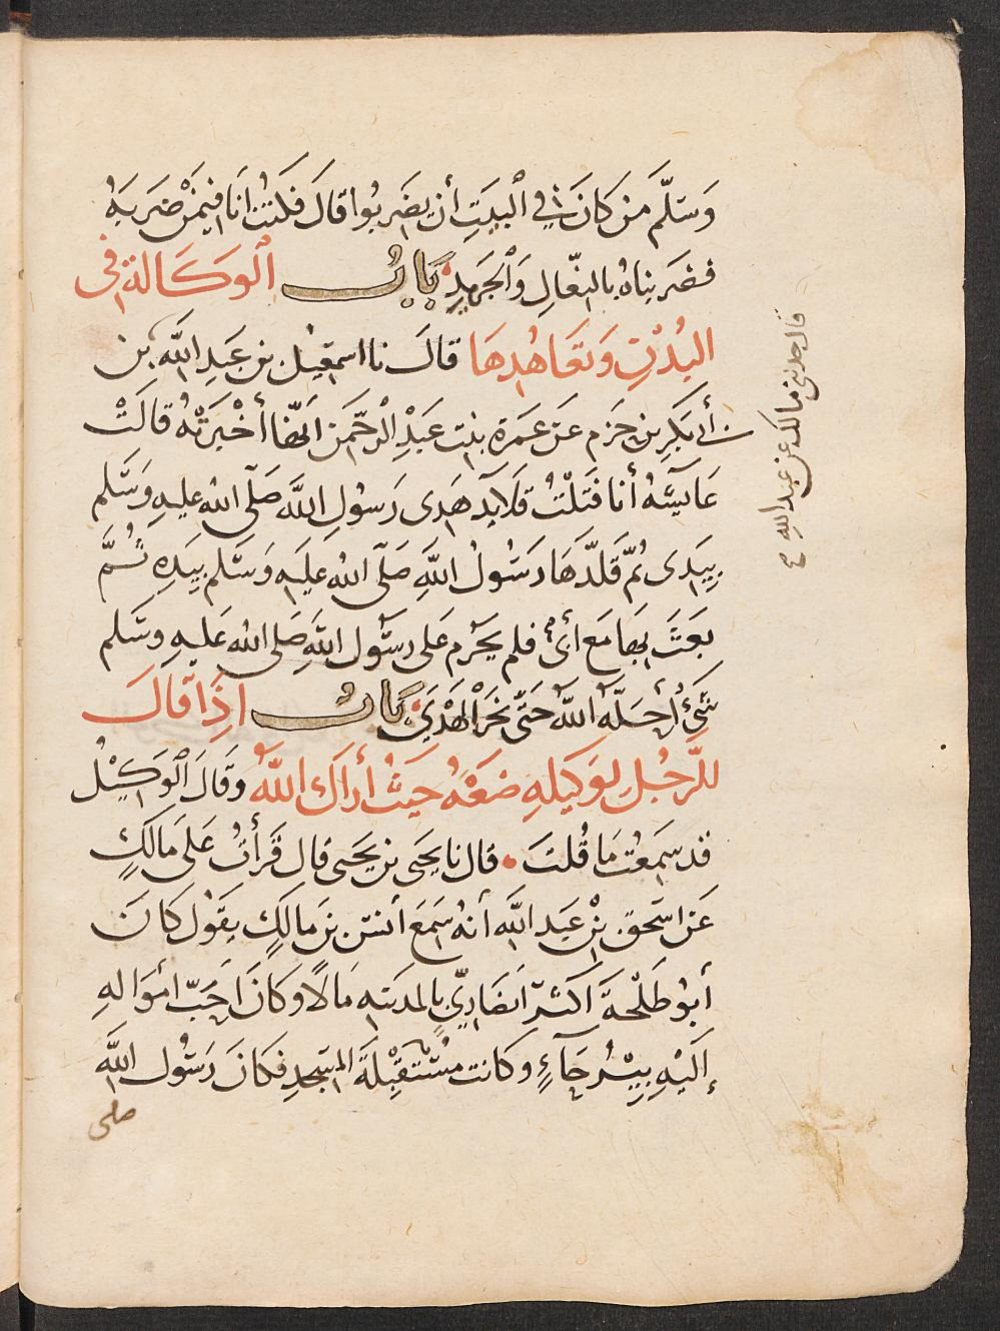 وَسَلَّمَ مَن كَانَ فِي الْبَيْتِ أن يَضْرِبُوا قَالَ فَكُنْتُ انَا فِيمَنْ ضَرَبَهُ
فضَرَبناهُ بالنّعَالِ وَالْجَرِيدِ بَابُ الْوَكَالَة فى
البُدْنِ وَتَعَاهُدِهَا قَالَ نا اسمعيل بن عَبدِ اللَّه بن
أَبي بَكرِ بن حَزم عَن عَمرة بنت عَبْدِ الرَّحْمَن انهَا أَخْبَرَتْهُ قالَتْ
عَايِشَةُ أنا فَتَلْتُ قلَايد هَدى رَسُولِ اللَّه صَلّى الله عليهِ وَسَلم
بِيَدى ثمّ قَلّدهَا رَسُولُ اللَّهِ صَلّى الله عليهِ وَسَلم بيَدِهِ ثُمَّ
بعَثَ بهَا مَعَ أبي فلم يحَرم عَلى رسُول اللَّهِ صَلى الله عَليهِ وسَلم
شَيْءٌ أحَلّهُ اللَّهُ حَتّى نحَرَ الهَدْيَ بَابُ اذَا قَالَ
للرَّجُل لوَكيلهِ ضَعْهُ حَيثُ أرَاكَ اللَّهُ وَقَالَ الْوَكِيْلُ
قد سَمِعْتُ مَا قُلتَ قال نا يحَيى بن يحَيى قال قَرأتُ عَلى مَالكٍ
عَن اسحق بْنِ عَبد اللَّه أنهُ سَمعَ أنسَ بنَ مَالكٍ يقَوُل كانَ
أبُو طَلْحَةَ أكثرَ انصَاريّ بالمدينه مَالًا وكانَ احَبّ أموَالهِ
إليْهِ بيْرُ حَآءٍ وكانت مُسْتَقْبِلَةَ المسجدِ فكانَ رَسُول اللَّه
صلى
قال حدثني مالك عن عبد الله